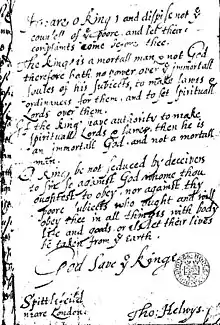 Heare o King, and dispise not ye
counsell of ye poore, and let their
complaints come before thee.
The king is a mortall man & not God
therefore hath no power over ye immortall
soules of his subiects, to make lawes &
ordinances for them, and to set spirituall
Lords over them.
If the king have authority to make
spirituall Lords & lawes, then he is
an immortall God, and not a mortall
man.
O king be not seduced by deceivers
to sin so against God whome thou
oughtest to obey, nor against thy
poore subiects who ought and will
obey thee in all thinges with body
life and goods or els let their lives
be taken from ye earth.
God Save ye King
Spittlefield
neare London.
Tho: Helwys.